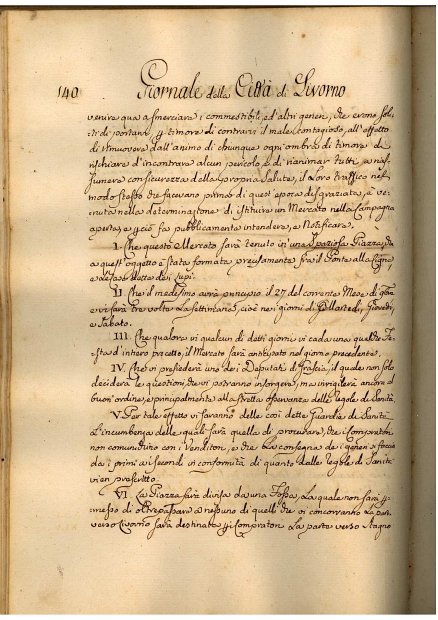 140 Giornale della Città di Livorno
venire qua a smerciare i commestibili, ed altri generi, che erono soli-
ti di portarvi, p timore di contrarvi il male contagioso, all'effetto
di rimuovere dall'animo di chiunque ogni ombra di timore di
rischiare d'incontrare alcun pericolo e di rianimar tutti a rias-
sumere con sicurezza della propria Salute, il Loro traffico nel
modo stesso che facevano prima di quest'epoca disgraziata, è ve-
nuta nella determinazione di istituire un Mercato nella Campagna
aperta, e p ciò fa pubblicamente intendere, e Notificare.
I. Che questo Mercato sarà tenuto in una Spaziosa Piazza, che
a quest'oggetto è stata formata precisamente fra il Ponte alla
e detta de' Lupi.
II. Che il medesimo avrà principio il 27 del corrente Mese di
e vi sarà tre volte La settimana, cioè nei giorni di Martedì, Giovedì,
e Sabato.
III. Che qualora in qualcun di detti giorni vi cada una qualche Fe-
sta d'intiero precetto, il Mercato sarà anticipato nel giorno precedente.
IV. Che vi presederà uno dei Deputati di Grascia, il quale non solo
deciderà le questioni, che vi potranno insorgere, ma invigilerà ancora al
buon'ordine, e principalmente alla stretta osservanza delle regole di Sanità.
V. Per tale effetto vi saranno delle così dette Guardie di Sanità
L'incumbenza delle quali sarà quella di procurare, che i Compratori
non comunichino con i Venditori, e che La consegna dei generi si faccia
da i primi ai secondi in conformità di quanto dalle regole di Sanità
vien prescritto.
VI. La Piazza sarà divisa da una Fossa, La quale non sarà p-
messo di oltrepassare a nessuno di quelli che vi concorranno La parte
verso Livorno sarà destinata p i Compratori La parte verso Stagno